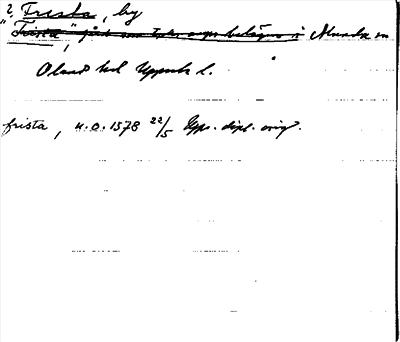 ? Frista, by
"Frista", i Alunda sn
Oland hd Uppsala l.
frista, u. o. 1578 22/5 Upps. dipl. orig.